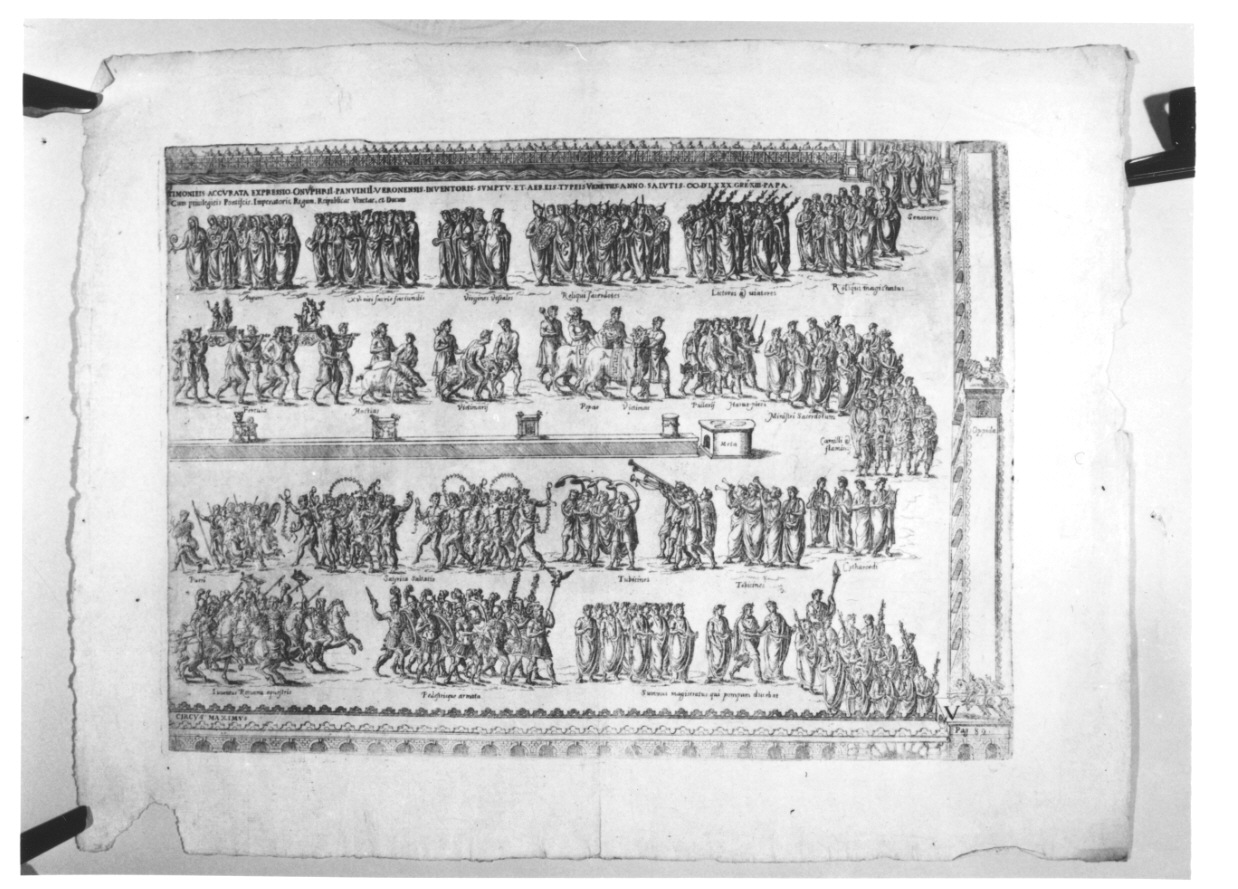 TIMONIEIS ACCVRATA EXPRESSIO ONVPHRII PANVINII VERONENSIS INVENTORIS SVMPTV ET AEREIS TYPEIS VENETIIS ANNO SALVTIS PAPA
Cum privilegiis Pontificis Imperatoris Regum Reipublicae Venetae et Ducum
Senatores
Augures
XV viri sacris faciundis
Virgines Vestales
Reliqui sacerdotes
Lictores viatores
Reliqui magistratus
Fercula
Hostiae
Victimarij
Popae
Victimae
Pullarij
Ministri Sacerdotum
Camilli
flamin
Oppida
Meta
Pueri
Saltatio
Tubicines
Tibicines
Cytharoedi
Iuventus Romana equestris
Pedestrisque armata
Summus magistratus qui pompam ducebat
CIRCVS MAXIMVS
V
Pag. 89